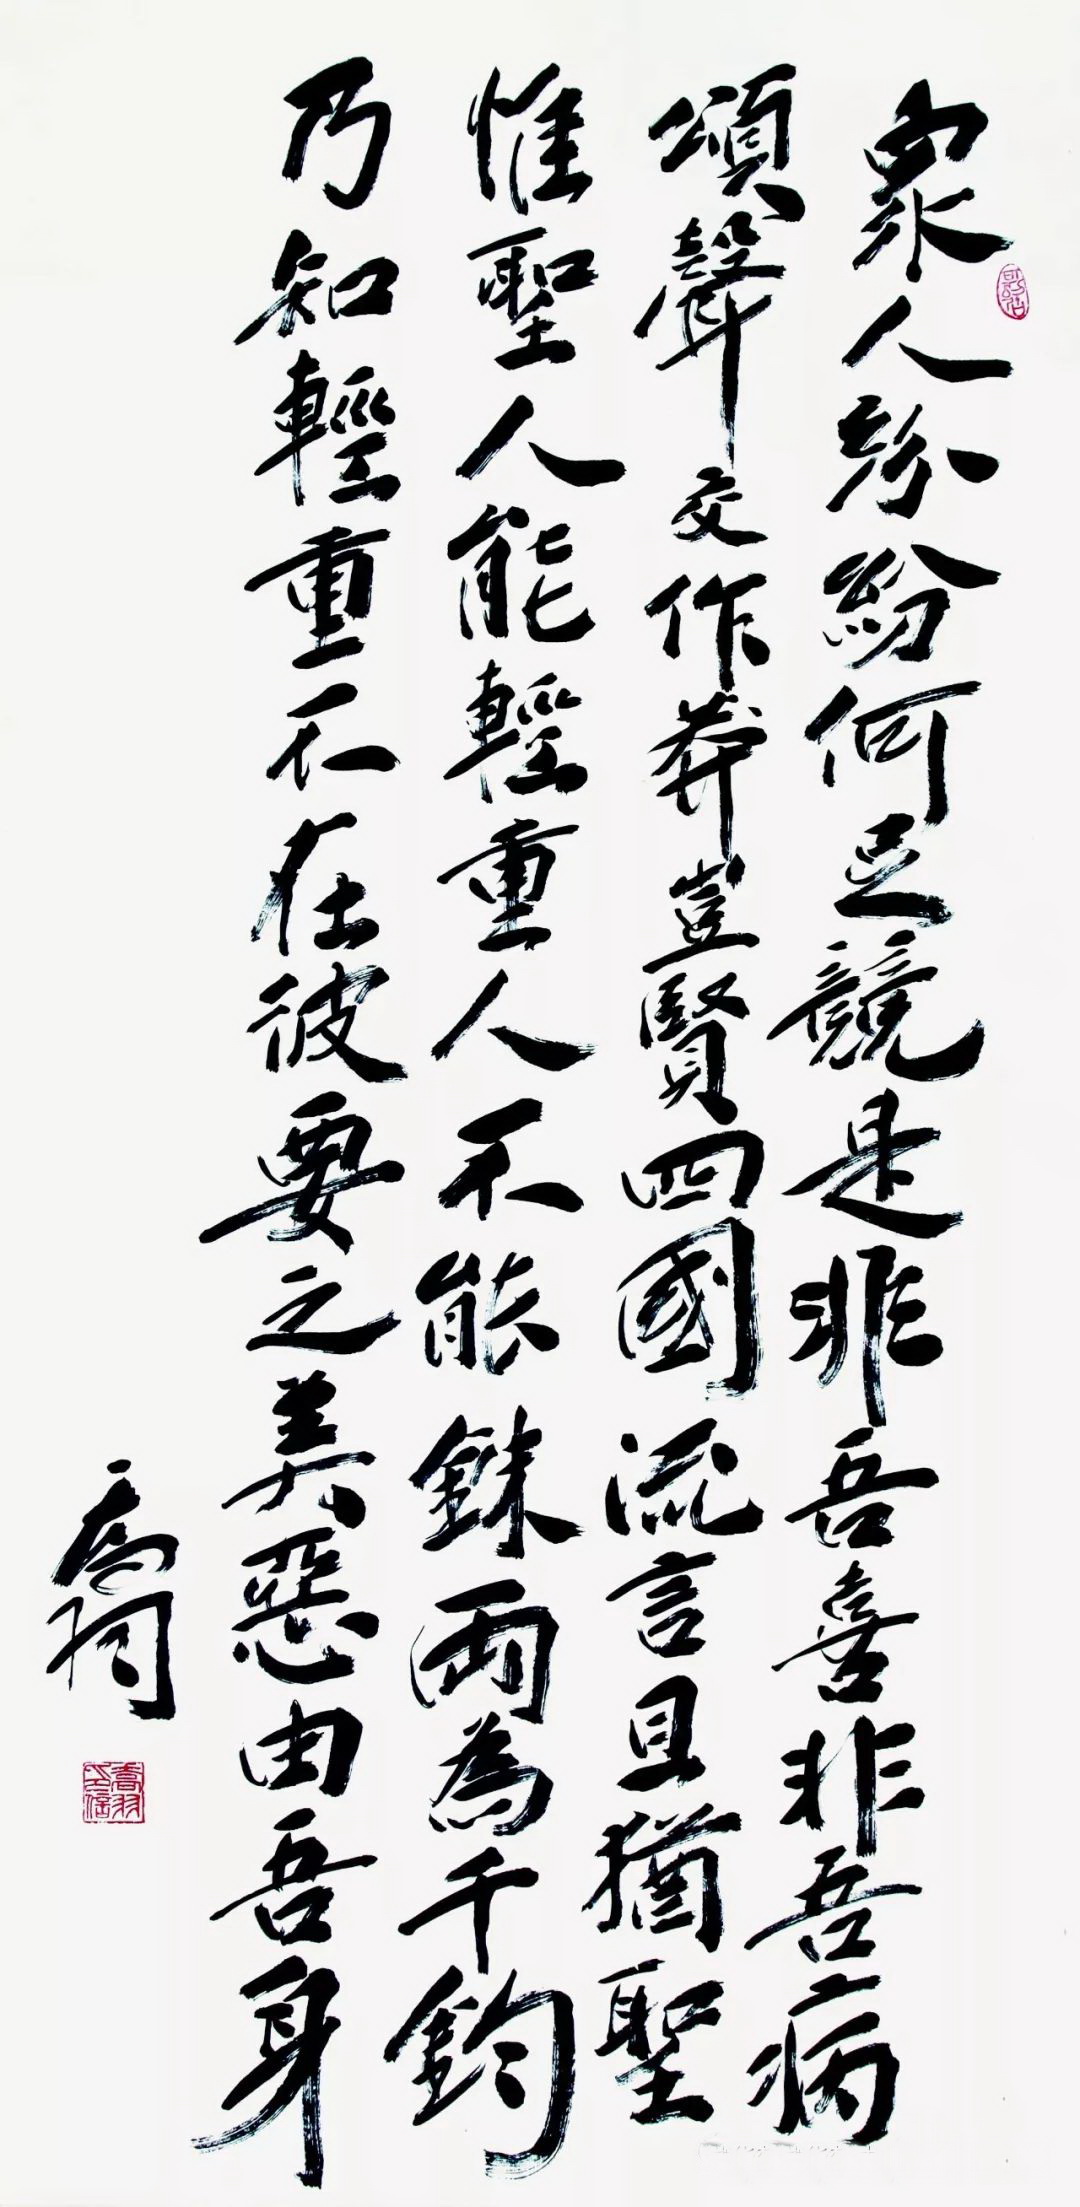 衆人紛紛何足競是非吾喜非吾病
頌聲交作莽豈賢四國流言且猶聖
惟聖人能輕重人不能銖兩為千鈞
乃知輕重不在彼要之美惡由吾身